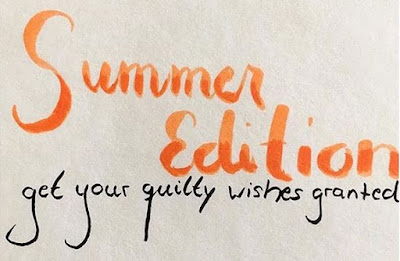 Summer
Edition
get your guilty wishes granted